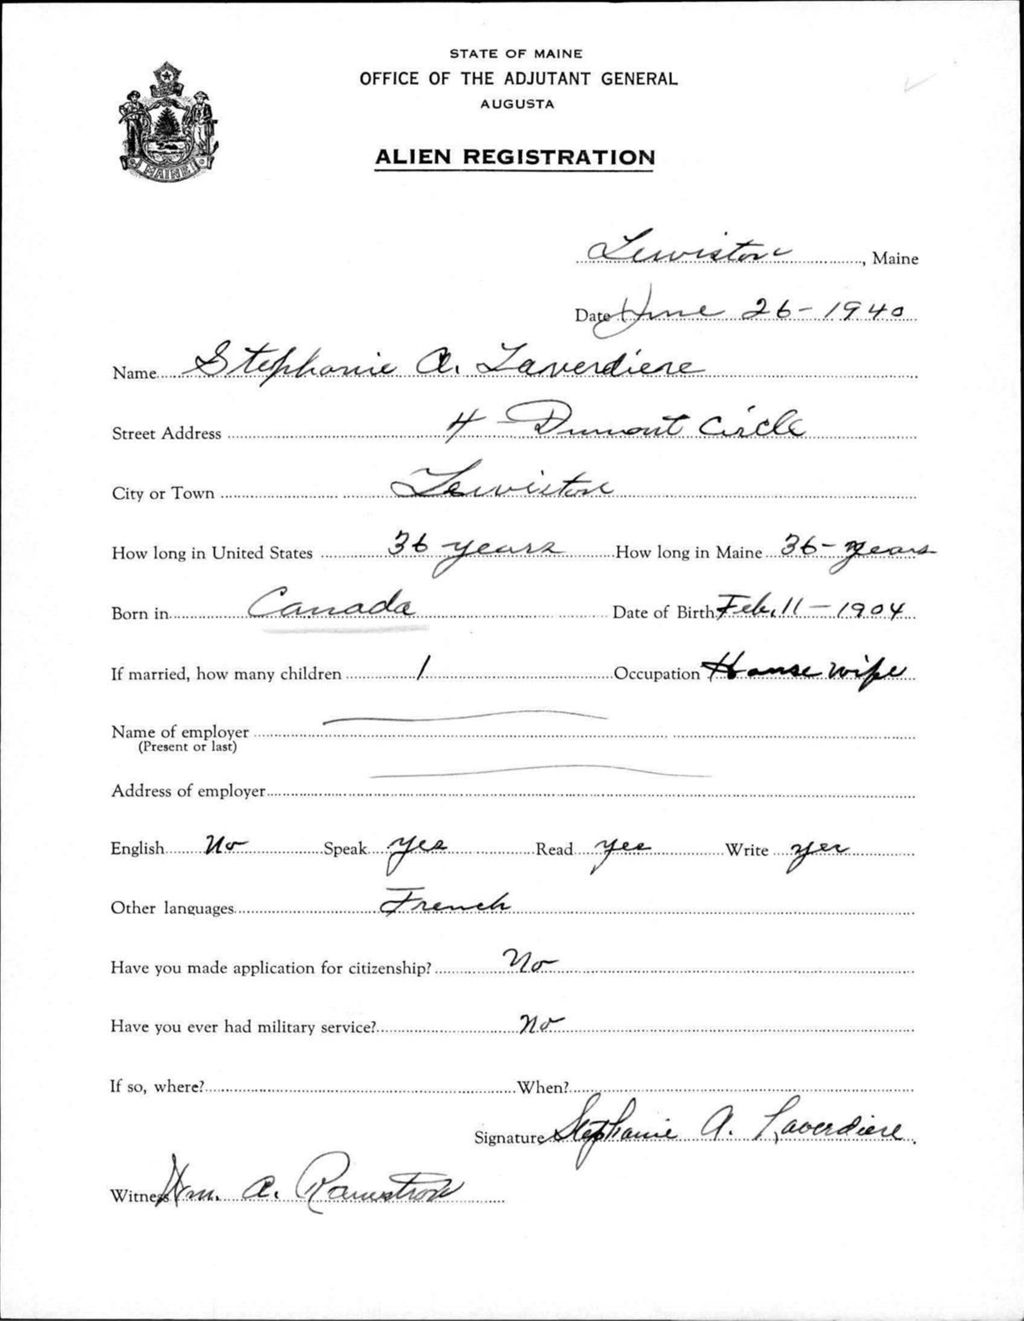 STATE OF MAINE
OFFICE OF THE ADJUTANT GENERAL
AUGUSTA
ALIEN REGISTRATION
MAINE
Lewiston, Maine
Date June 26-1940
Name Stephanie A. Laverdiere
Street Address 4 Dumont Circle
City or Town Lewiston
How long in United States 36 years How long in Maine 36-years
Born in Canada Date of Birth Feb. 11-1904
If married, how many children 1 Occupation House wife
Name of employer
(Present or last)
Address of employer
English No Speak yes Read yes Write yes
Other languages French
Have you made application for citizenship? No
Have you ever had military service? No
If so, where? When?
Signature Stephanie A. Laverdiere
Witness Wm. A.